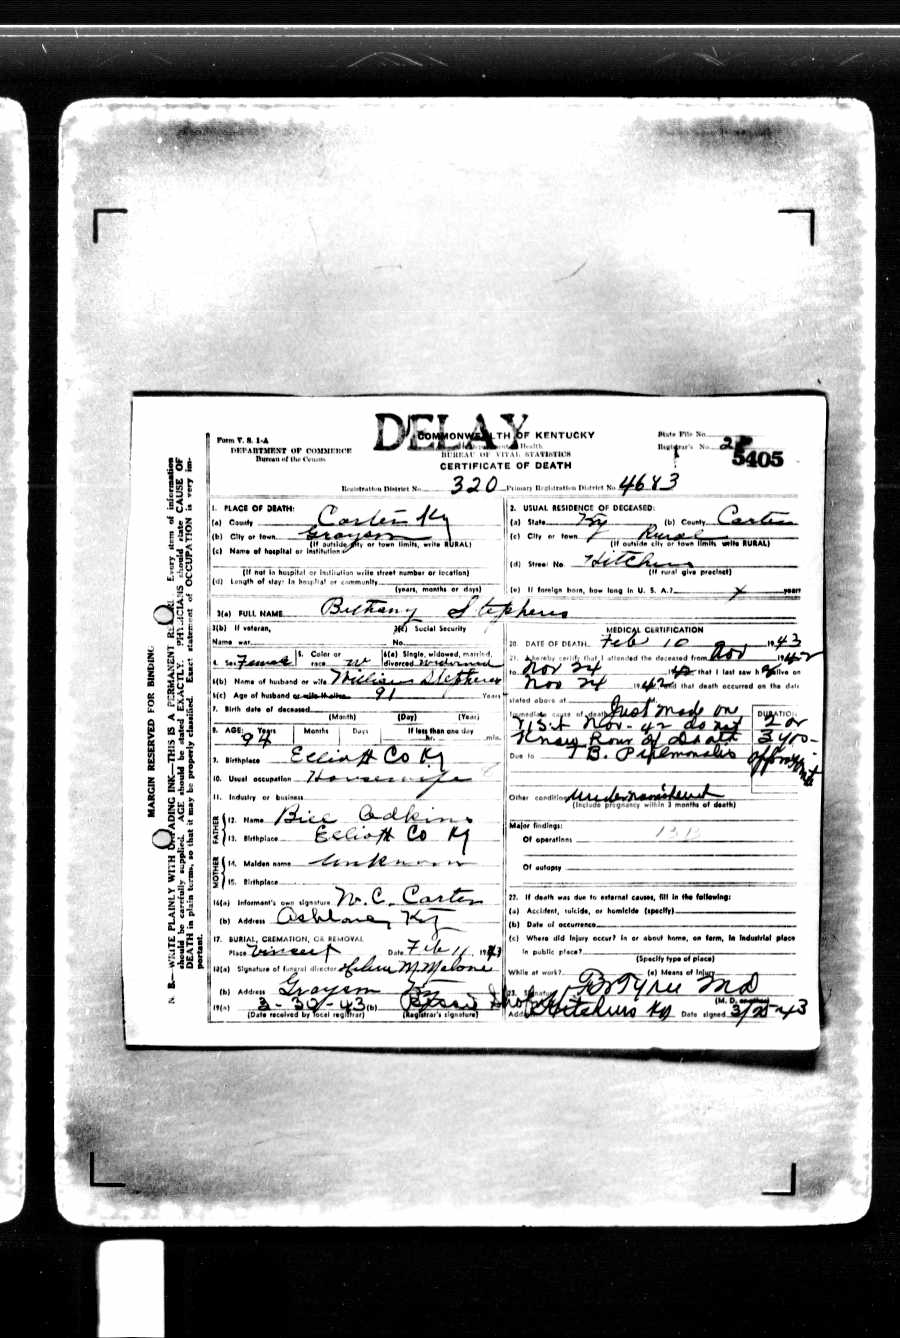 DELAY
Form V. S. 1-A
COMMONWEALTH OF KENTUCKY
State File No.
DEPARTMENT OF COMMERCE
Health
Registrar's No. 28
Bureau of the Census
BUREAU OF VITAL STATISTICS
5405
CERTIFICATE OF DEATH
Registration District No. 320 Primary Registration District No. 4683
1. PLACE OF DEATH:
(a) County Carter Ky
(b) City or town Grayson
(If outside city or town limits, write RURAL)
(c) Name of hospital or institution
(If not in hospital or institution write street number or location)
(d) Length of stay: In hospital or community
(years, months or days)
2. USUAL RESIDENCE OF DECEASED:
(a) State Ky (b) County Carter
(c) City or town Rural
(If outside city or town limits write RURAL)
(d) Street No. Hitchins
(If rural give precinct)
(e) If foreign born, how long in U. S. A.? x years
3(a) FULL NAME Bethany Stephens
3(b) If veteran, 3(c) Social Security
Name war No.
4. Sex Female 5. Color or race W 6(a) Single, widowed, married, divorced widowed
6(b) Name of husband or wife William Stephens
6(c) Age of husband or wife if alive 91 Years
7. Birth date of deceased
(Month) (Day) (Year)
8. AGE: Years 94 Months Days If less than one day hr. min.
9. Birthplace Elliott Co Ky
10. Usual occupation Housewife
11. Industry or business
FATHER
12. Name Bill Adkins
13. Birthplace Elliott Co Ky
MOTHER
14. Maiden name Unknown
15. Birthplace
16(a) Informant's own signature W. C. Carter
(b) Address Ashland, Ky
17. BURIAL, CREMATION, OR REMOVAL
Place Vincent Date Feb 11, 1943
18(a) Signature of funeral director M. Malone
(b) Address Grayson Ky
19(a) 3-30-43 (b)
(Date received by local registrar) (Registrar's signature)
MEDICAL CERTIFICATION
20. DATE OF DEATH Feb 10 1943
21. I hereby certify that I attended the deceased from Nov 1942
to Nov 24 1942 that I last saw her alive on
Nov 24 1942 and that death occurred on the date
stated above at
Immediate cause of death Just made one
Visit Nov-42 do not
Know Hour of Death
DURATION
2 or
3 yrs-
Due to T B. Pulmonalis
Other condition
(Include pregnancy within 3 months of death)
Major findings:
Of operations
13 B
Of autopsy
22. If death was due to external causes, fill in the following:
(a) Accident, suicide, or homicide (specify)
(b) Date of occurrence
(c) Where did injury occur? in or about home, on farm, in industrial place
in public place?
(Specify type of place)
While at work? (e) Means of Injury
23. Signature Tyree MD
(M. D. or other)
Address Hitchins Ky Date signed 3/25-43
MARGIN RESERVED FOR BINDING
N. B.—WRITE PLAINLY WITH UNFADING INK—THIS IS A PERMANENT RECORD Every item of information
should be carefully supplied. AGE should be stated EXACTLY. PHYSICIANS should state CAUSE OF
DEATH in plain terms, so that it may be properly classified. Exact statement of OCCUPATION is very im-
portant.